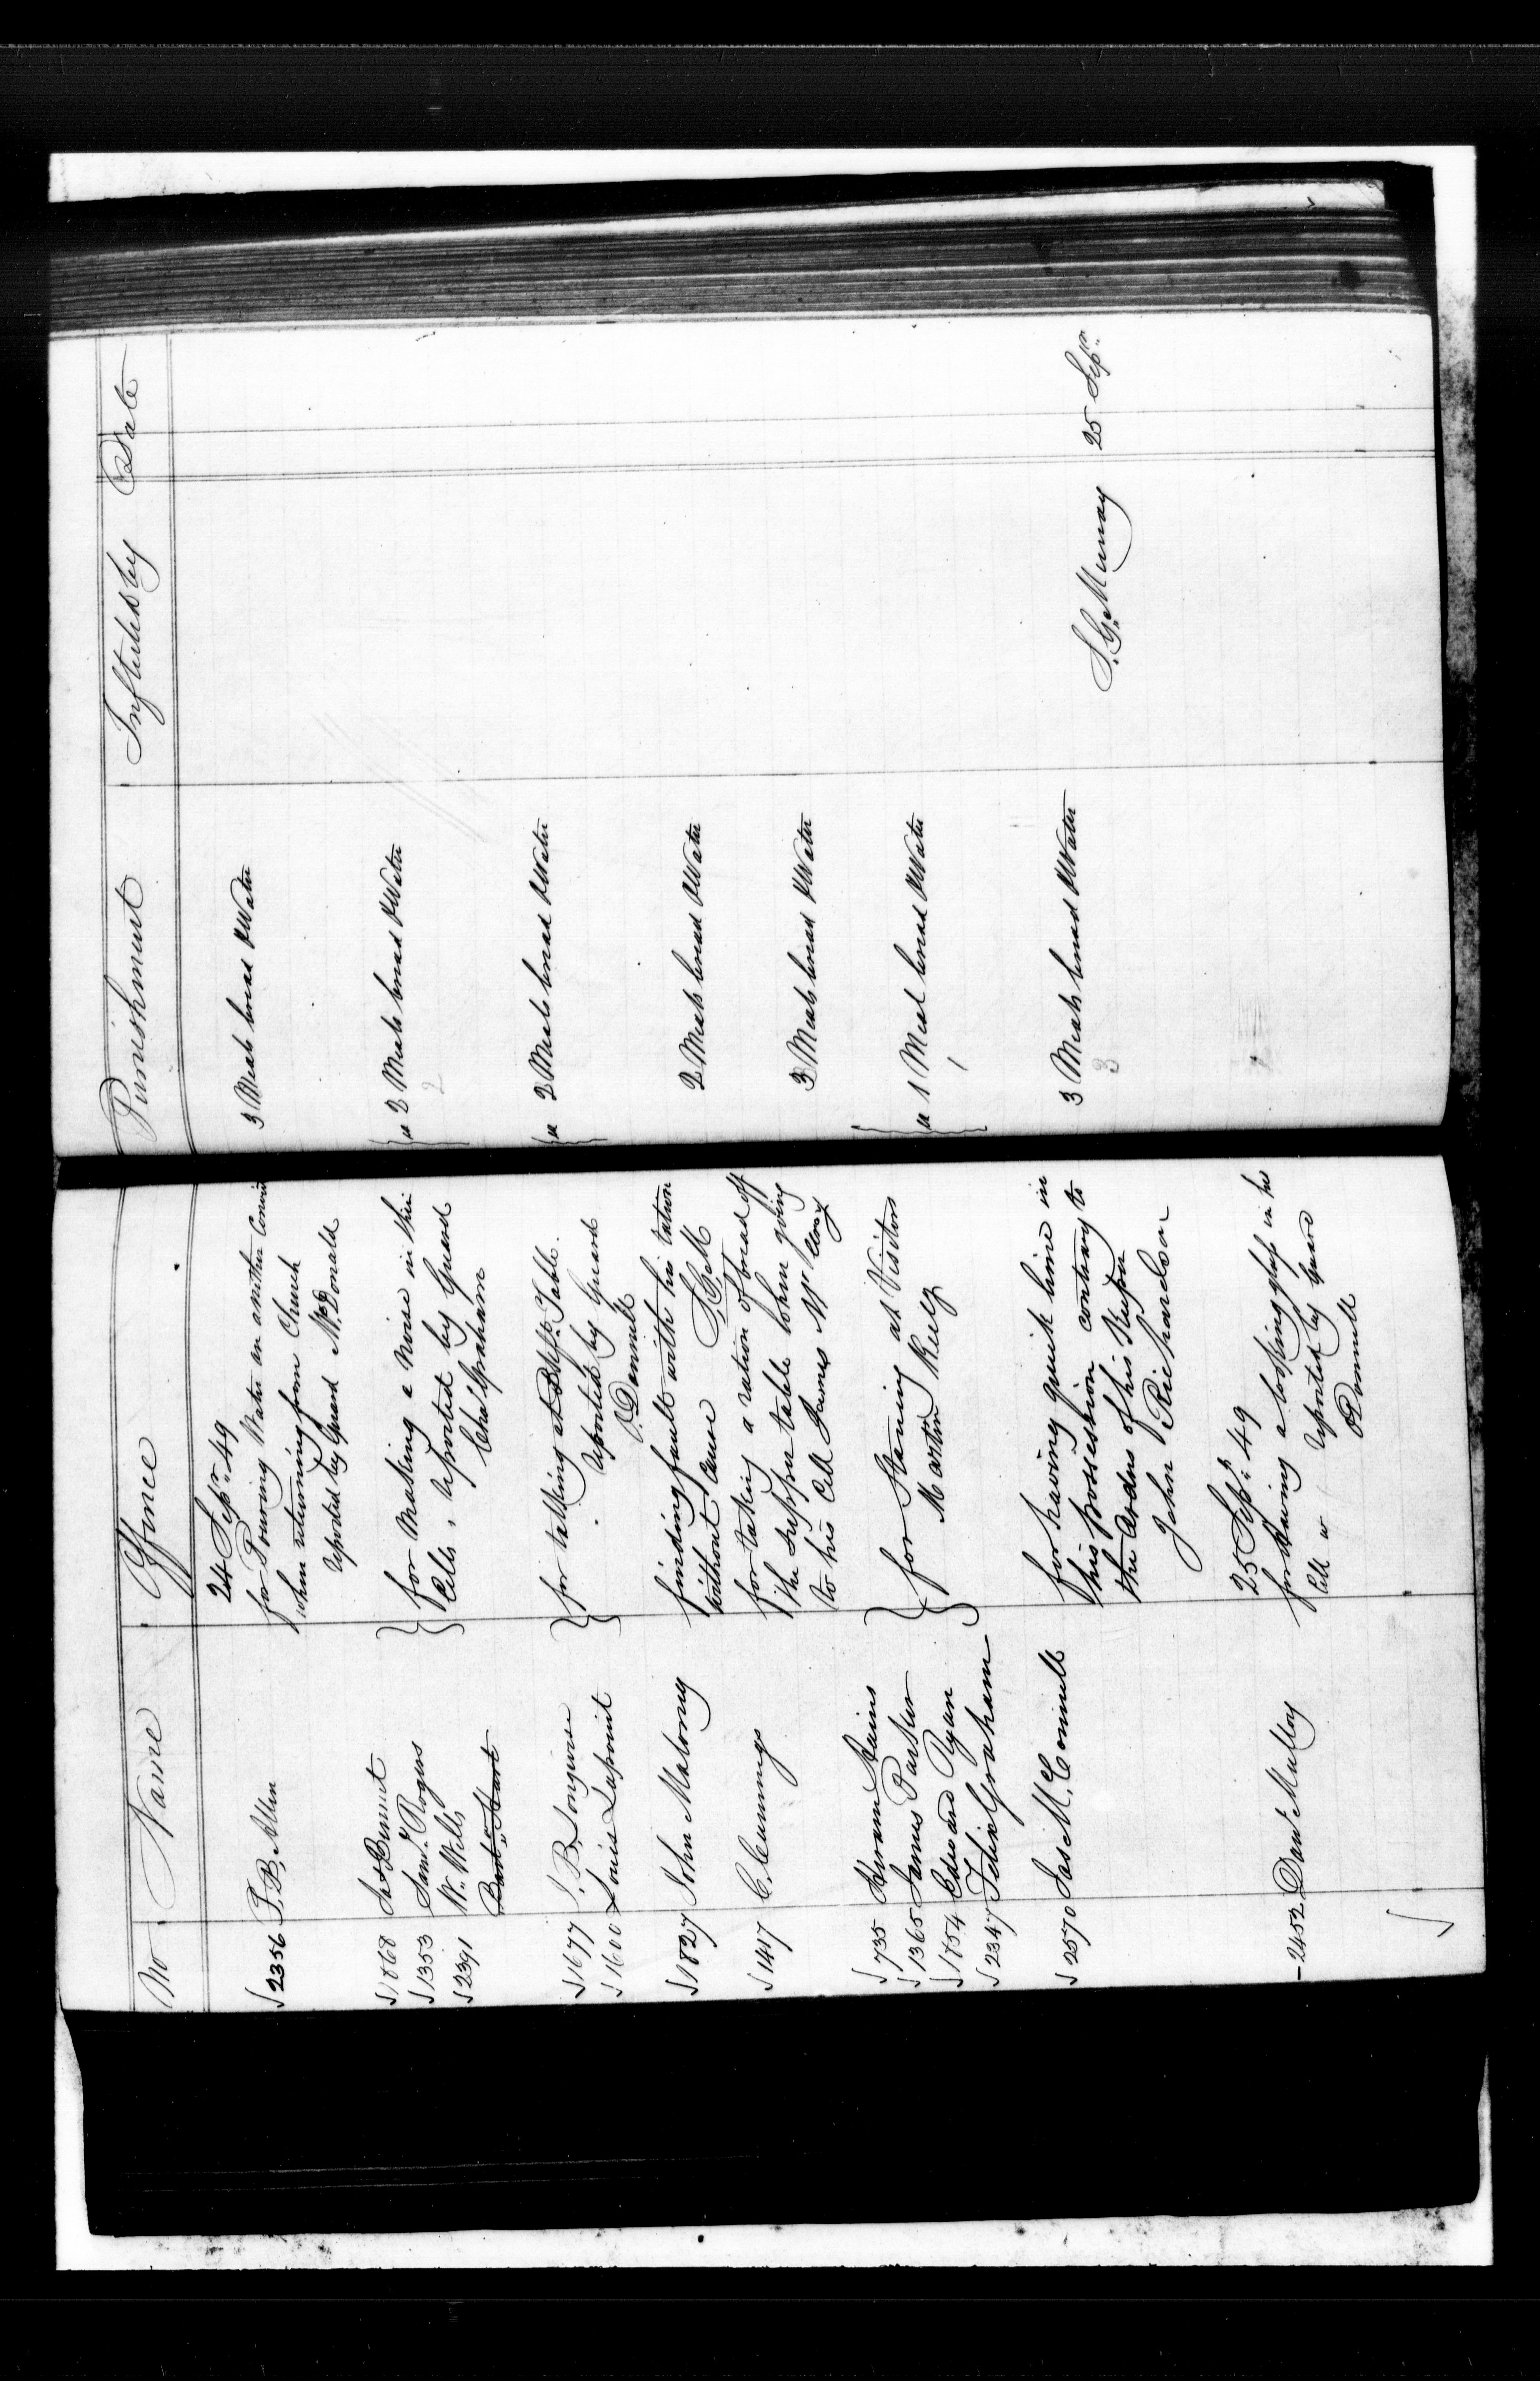 No Name Offence Punishment Inflicted by Date
24 Sepr. 49
2356 P. B. Allen for Pouring Water on another Convict 3 Meals bread & Water
when returning from Church
reported by Guard McDonald
1868 Jas Bennet for Making a Noise in thier 2 Meals bread & Water
1353 Saml. Rogers Cells, reported by Guard 2
2391 W. Wells Chas Graham
Bart. Hart
1677 J. B. Longuise for talking at Bkft. Table. 2 Meals bread & Water
1600 Louis Lapouit reported by Guard
O'Donnell
1827 John Malony finding fault with his ration 2 Meals bread & Water
without Cause S.G.M
1417 C. Cummings for taking a ration of bread off 3 Meals bread & Water
the Supper table when going
to his Cell James McCloxy
735 Hiram
1365 James Parker for Staring at Visitors 1 Meal bread & Water
1854 Edward Ryan Martin Keely 1
2347 Felix Graham
2570 Jas McConnell for having quick lime in 3 Meals bread & Water
his possession contrary to 3 S. G. Murray 25 Sepr.
the orders of his Keeper
John Richardson
25 Sepr. 49
2452 Danl Mulloy for having a looking glass in his
Cell reported by Guard
O'Donnell